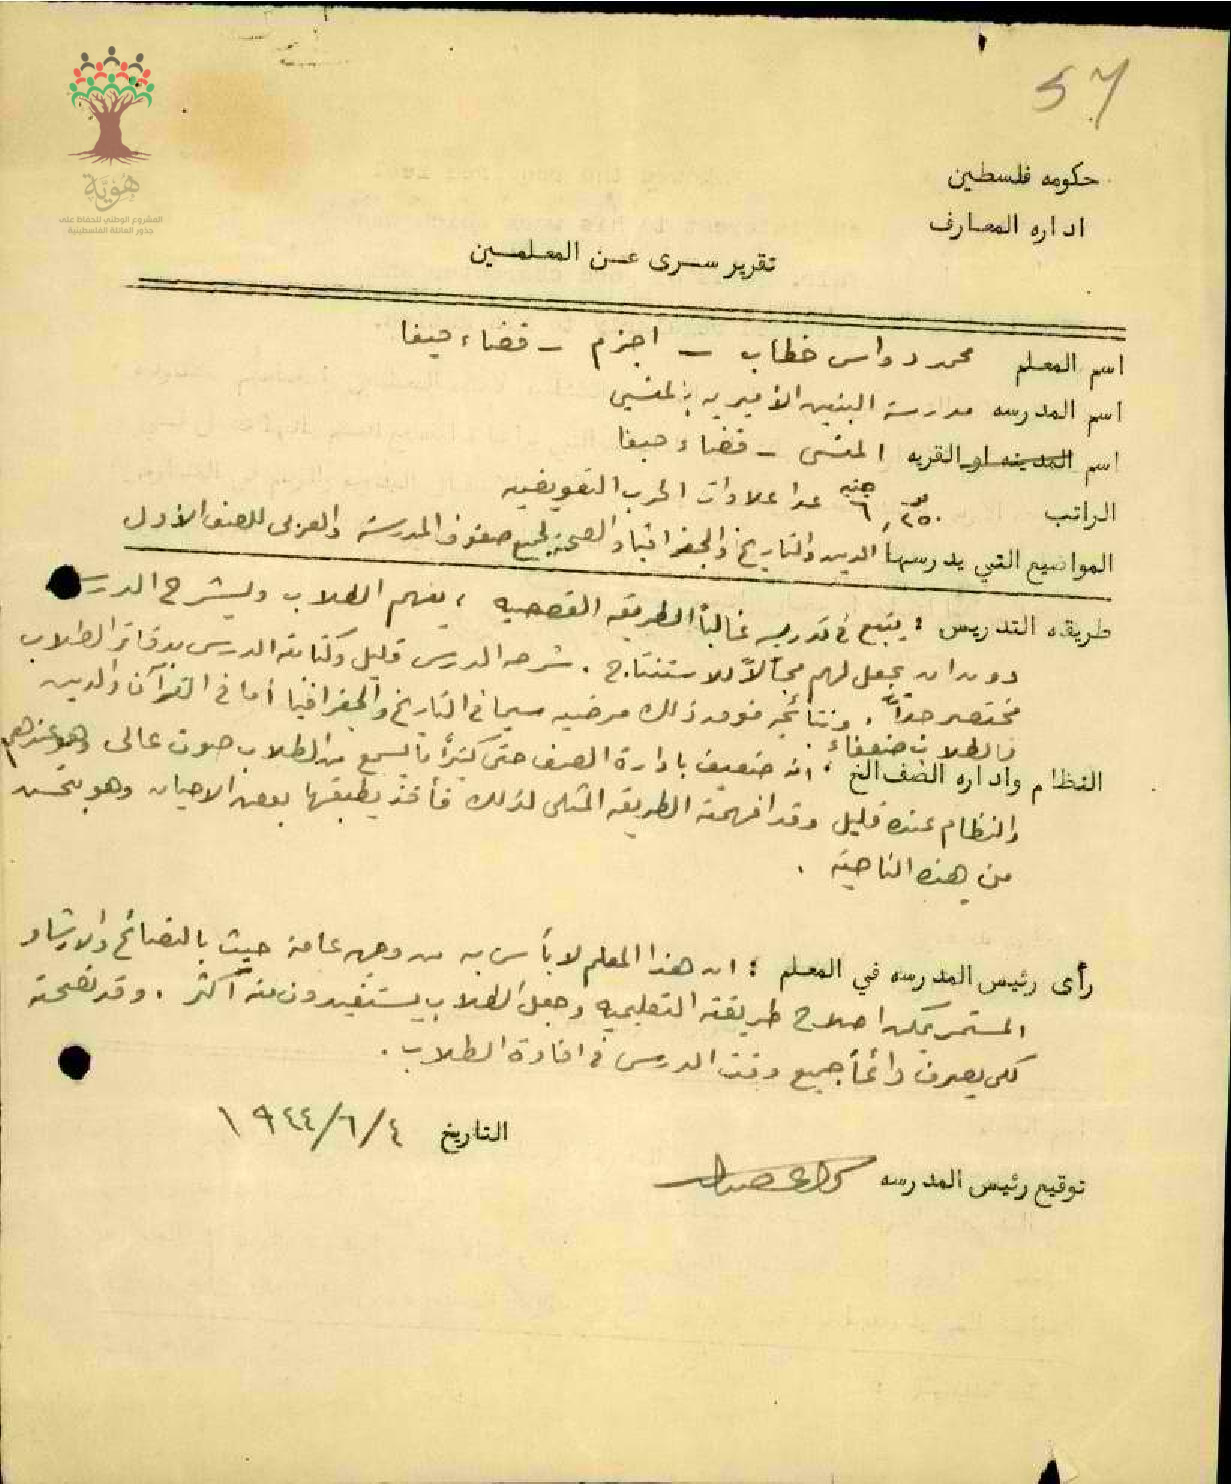 57
هُوِيَّة
المشروع الوطني للحفاظ على
جذور العائلة الفلسطينية
حكومه فلسطين
اداره المعارف
تقرير سرى عن المعلمين
اسم المعلم محمد دواس خطاب – اجزم – قضاء حيفا
اسم المدرسه مدرسة البنين الأميريه بالمنسي
اسم المدينه او القريه المنسي – قضاء حيفا
الراتب ٦,٢٥٠ جنيه عدا علاوات الحرب التعويضيه
المواضيع التي يدرسها الدين والتاريخ والجغرافيا والصحة لجميع صفوف المدرسة والعربي للصف الأول
طريقه التدريس : يتبع في تدريسه غالباً الطريقه القصصيه ، يفهم الطلاب ويشرح الدرس
دون ان يجعل لهم مجالاً للاستنتاج . شرحه الدرس قليل وكتابة الدرس بدفاتر الطلاب
مختصر جداً . ونتائجه فوق ذلك مرضيه سيما في التاريخ والجغرافيا أما في القرآن والدين
فالطلاب ضعفاء .
النظام واداره الصف الخ : انه ضعيف بادارة الصف حتى كثيراً ما يسمع من الطلاب صوت عالى
والنظام عنده قليل وقد افهمته الطريقه المثلى لذلك فأخذ يطبقها بعض الاحيان وهو يتحسن
من هذه الناحية .
رأى رئيس المدرسه في المعلم : ان هذا المعلم لا بأس به من وجهه عامة حيث بالنصائح والارشاد
المستمر يمكن اصلاح طريقته التعليميه وجعل الطلاب يستفيدون منه أكثر . وقد نصحته
لكي يصرف دائماً جميع وقت الدرس في افادة الطلاب .
التاريخ ٤/٦/١٩٤٤
توقيع رئيس المدرسه